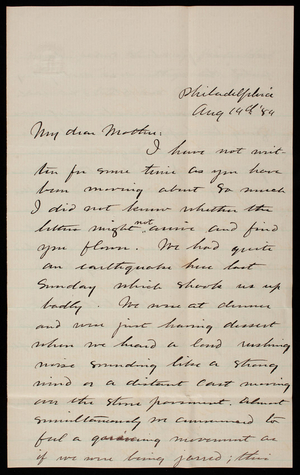 Philadelphia
Aug 14th '84
My dear Mother:
I have not writ-
ten for some time as you have
been moving about so much
I did not know whether the
letter might not arrive and find
you flown. We had quite
an earthquake here last
Sunday which shook us up
badly. We were at dinner
and were just having dessert
when we heard a loud rushing
noise sounding like a strong
wind or a distant cart moving
over the stone pavement; almost
simultaneously we commenced to
feel a movement as
if we were being jarred; this